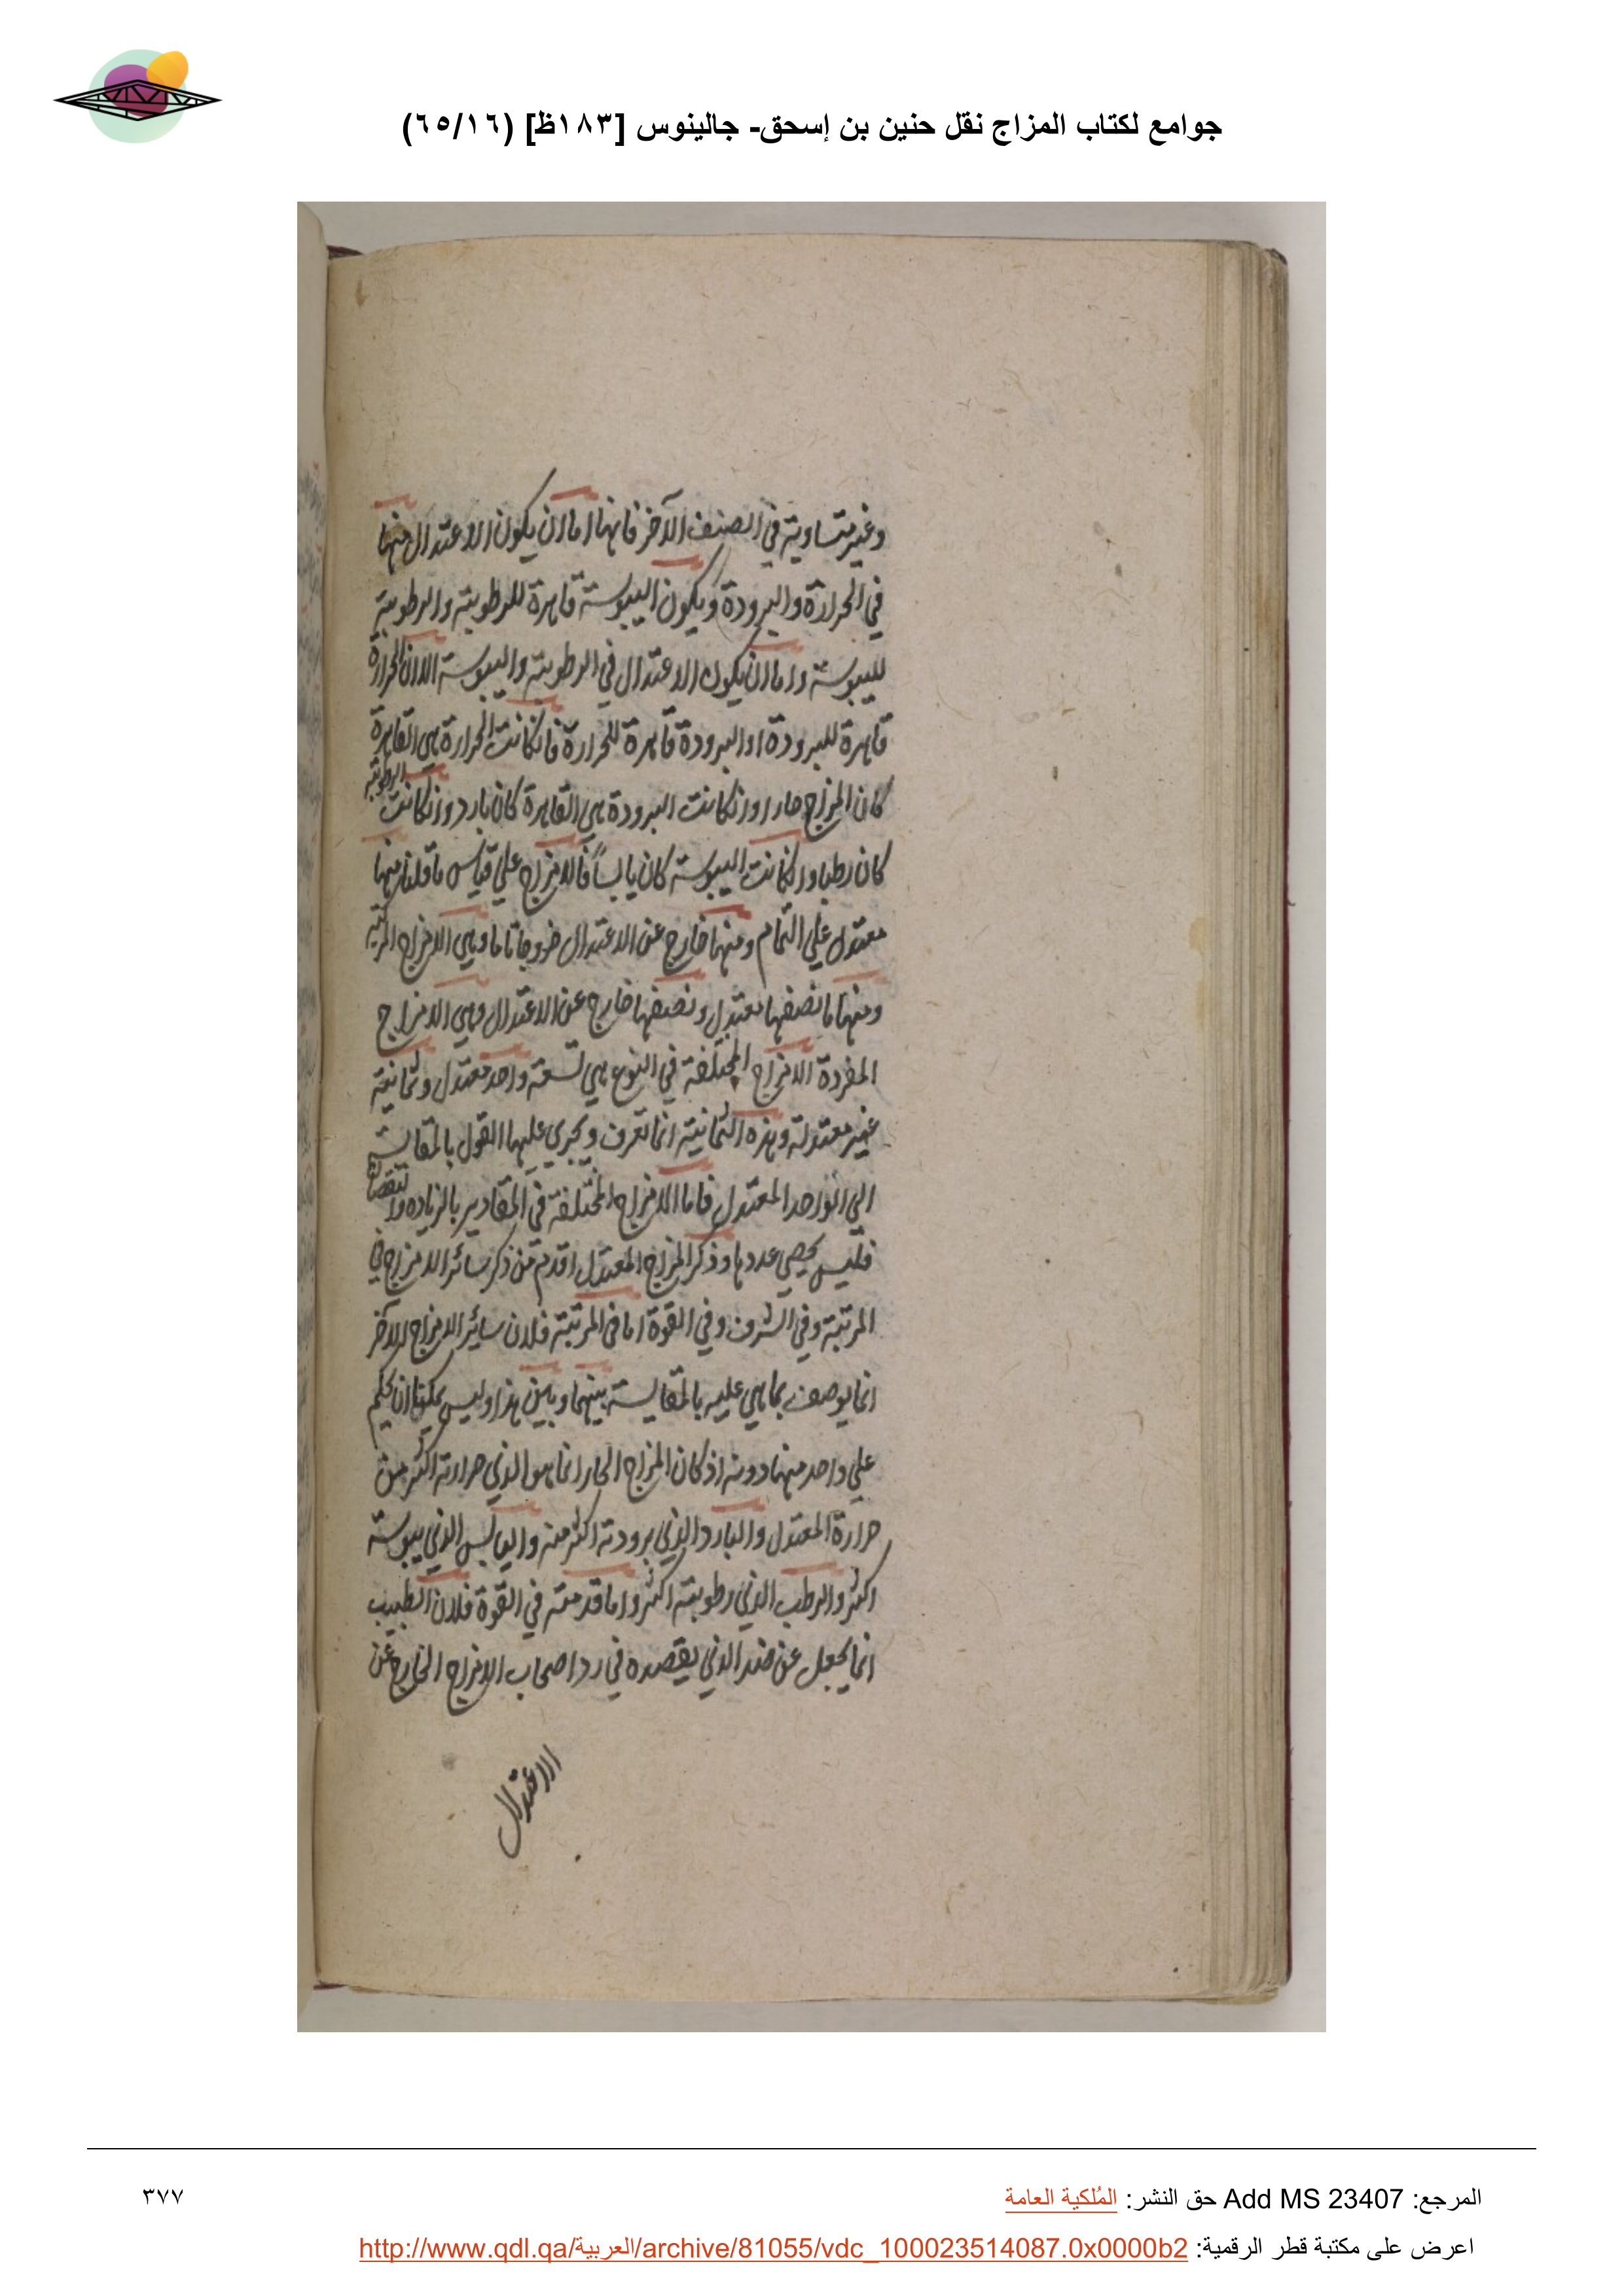 جوامع لكتاب المزاج نقل حنين بن إسحق- جالينوس [١٨٣ظ] (٦٥/١٦)
وغير متساوية في الصنف الآخر فانها اما ان يكون الاعتدال منها
في الحرارة والبرودة ويكون اليبوسة قاهرة للرطوبة والرطوبة
لليبوسة واما ان يكون الاعتدال في الرطوبة واليبوسة الا ان الحرارة
قاهرة للبرودة او البرودة قاهرة للحرارة فان كانت الحرارة هي القاهرة
كان المزاج حارا وان كانت البرودة هي القاهرة كان بارد وان كانت الرطوبة
كان رطبا وان كانت اليبوسة كان يابساً فالامزاج علي قياس ما قلنا منها
معتدل علي التمام ومنها خارج عن الاعتدال خروجا تاما وهي الامزاج المركبة
ومنها ما نصفها معتدل ونصفها خارج عن الاعتدال وهي الامزاج
المفردة الامزاج المختلفة في النوع هي تسعة واحد معتدل وثمانية
غير معتدلة وهذه الثمانية انما تعرف ويجري عليها القول بالمقايسة
الي الواحد المعتدل فاما الامزاج المختلفة في المقادير بالزياده والنقصان
فليس يحصي عددها وذكر المزاج المعتدل اقدم من ذكر سائر الامزاج في
المرتبة وفي الشرف وفي القوة اما في المرتبة فلان سائر الامزاج الآخر
انما يوصف بما هي عليه بالمقايسة بينهما وبين هذا وليس يمكن ان يحكم
علي واحد منها دونه اذ كان المزاج الحار انما هو الذي حرارته اكثر من
حرارة المعتدل والبارد الذي برودته اكثر منه واليابس الذي يبوسته
اكثر والرطب الذي رطوبته اكثر واما قدمته في القوة فلان الطبيب
انما يجعل غرضه الذي يقصده في رد اصحاب الامزاج الخارج عن
الاعتدال
المرجع: Add MS 23407 حق النشر: المُلكية العامة
٣٧٧
اعرض على مكتبة قطر الرقمية: http://www.qdl.qa/العربية/archive/81055/vdc_100023514087.0x0000b2